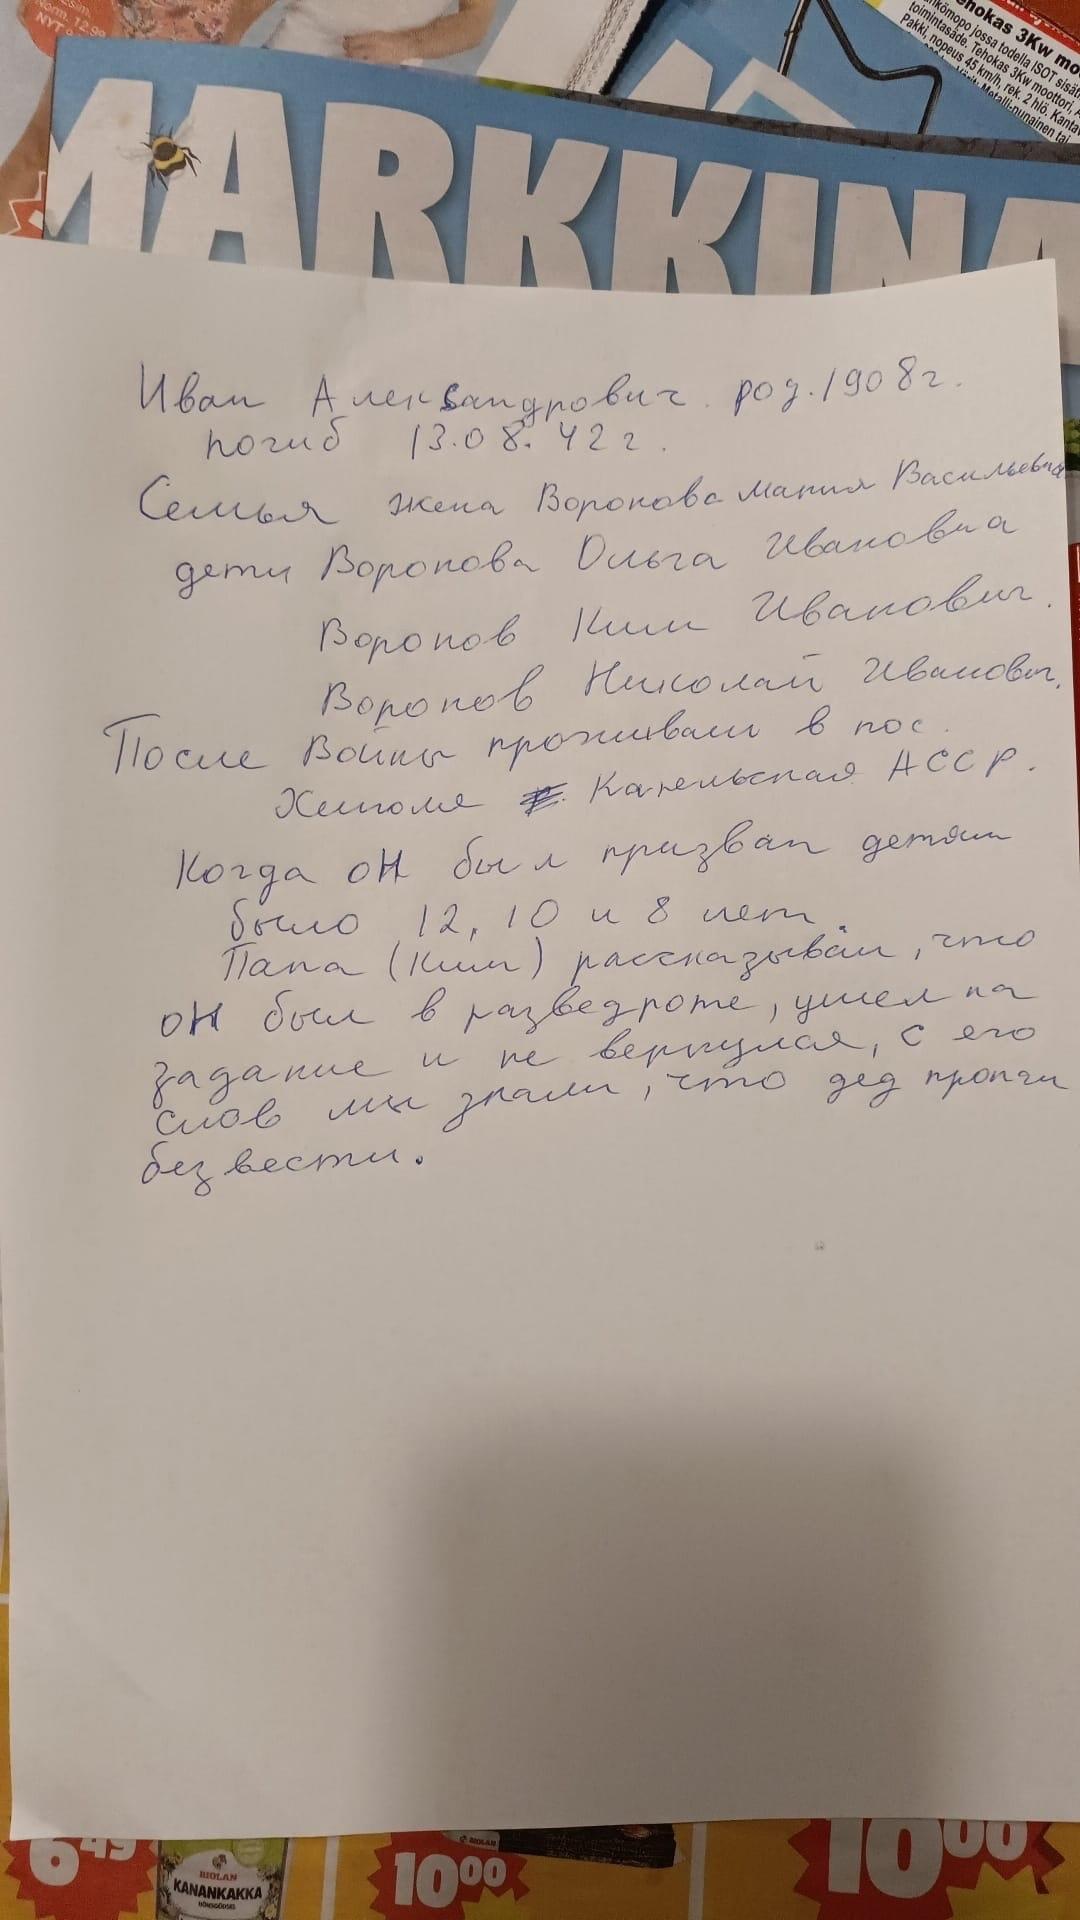 Norm. 12,90
NYT
Tehokas 3Kw mo
nkömopo jossa todella ISOT sisä
toimintasäde. Tehokas 3Kw moottori,
Pakki, nopeus 45 km/h, rek. 2 hlö. Kanta
Metalli-punainen tai
MARKKINA
Иван Александрович. род. 1908г.
погиб 13.08.42г.
Семья жена Воронова Мария Васильевна
дети Воронова Ольга Ивановна
Воронов Ким Иванович.
Воронов Николай Иванович.
После Войны проживали в пос.
Хийтола Карельская АССР.
Когда он был призван детям
было 12, 10 и 8 лет.
Папа (Ким) рассказывал, что
он был в разведроте, ушел на
задание и не вернулся, с его
слов мы знали, что дед пропал
без вести.
6 49
BIOLAN
KANANKAKKA
HÖNSGÖDSEL
BIOLAN
10 00
10 00